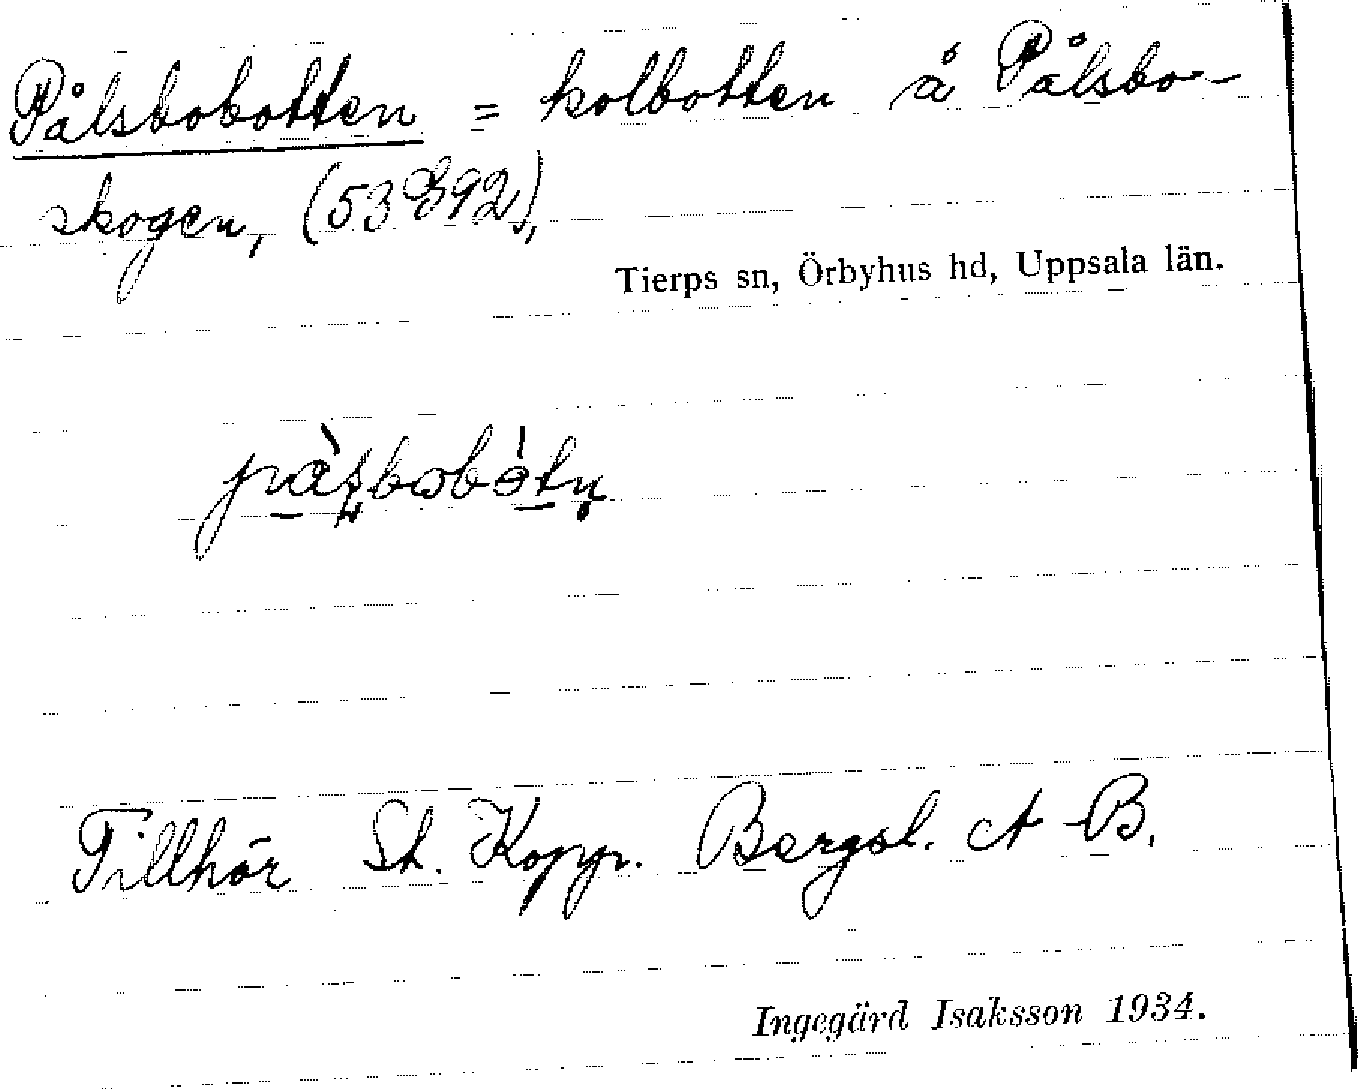 Pålsbobotten = kolbotten å Pålsbo-
skogen, (53 E92),
Tierps sn, Örbyhus hd, Uppsala län.
Tillhör St. Kopp. Bergsl. A-B.
Ingegärd Isaksson 1934.